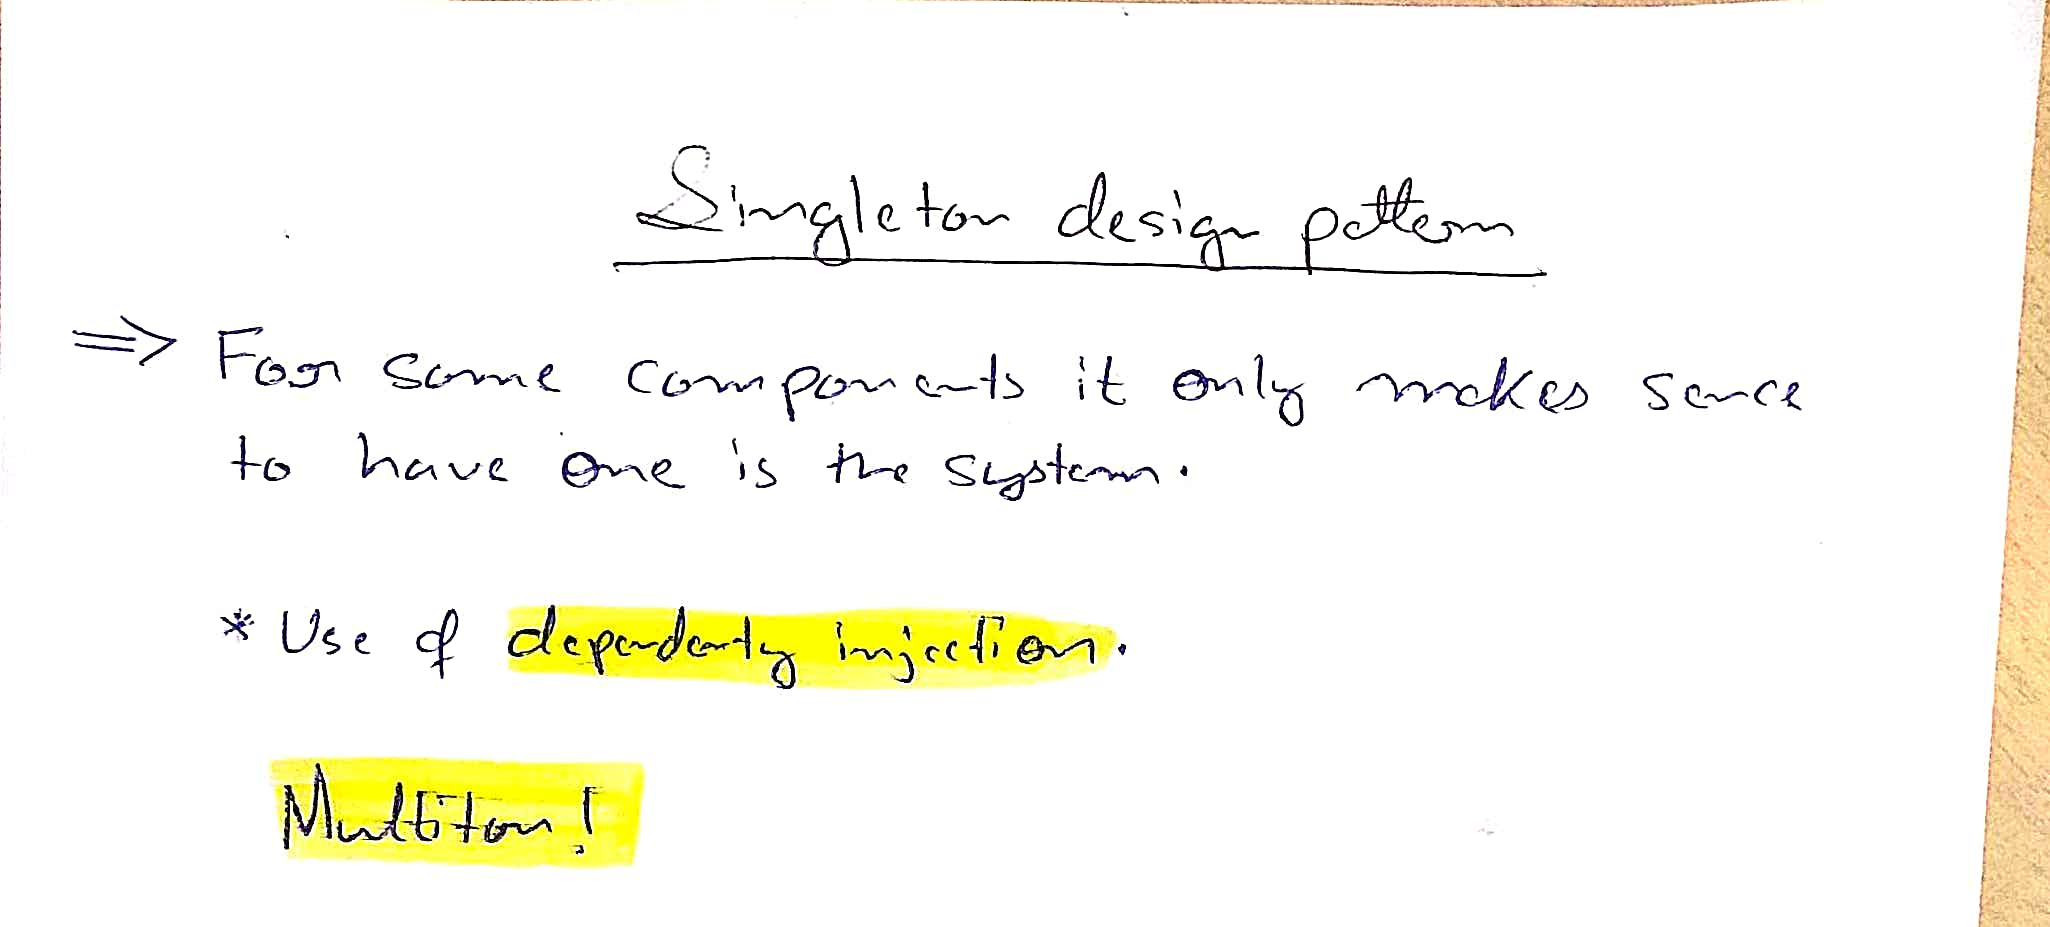 Singleton design pattern
=> For some components it only makes sence
to have one is the system.
* Use of dependenty injection.
Multiton!